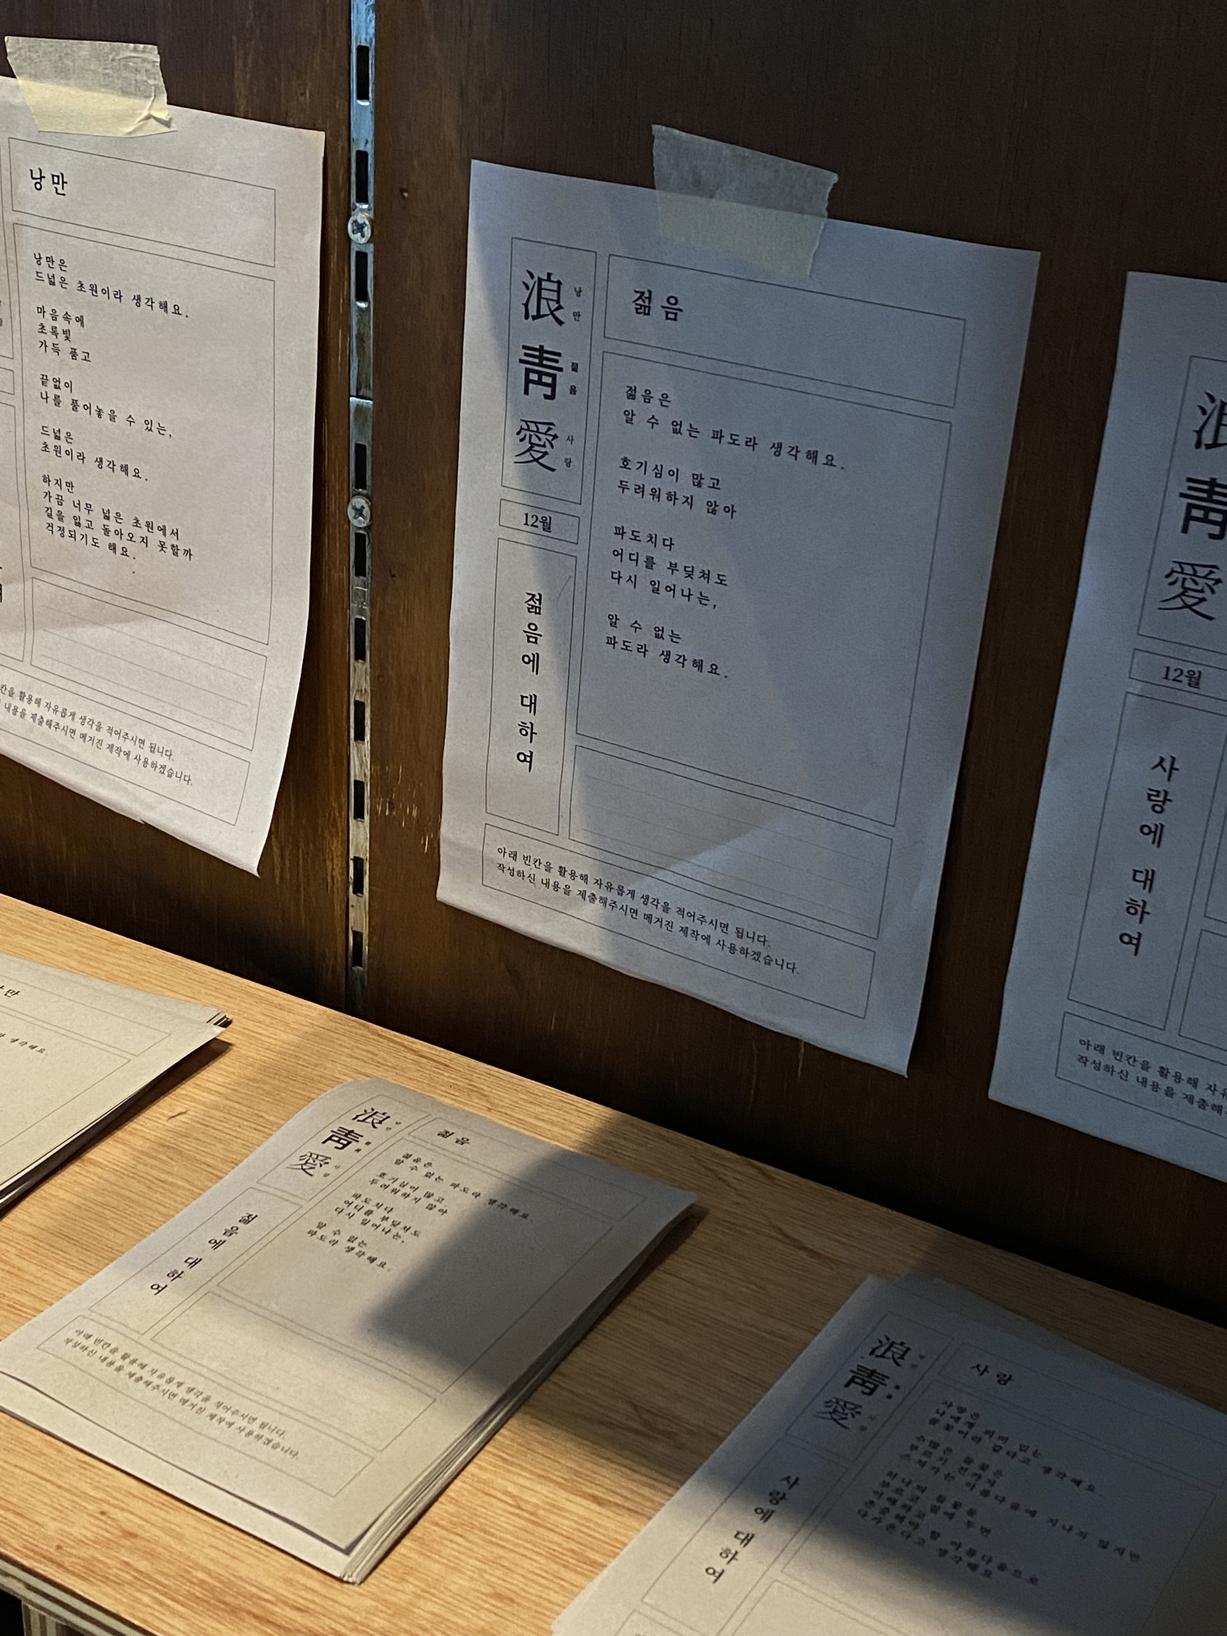 낭만
낭만은
드넓은 초원이라 생각해요.
마음속에
초록빛
가득 품고
끝없이
나를 풀어놓을 수 있는,
드넓은
초원이라 생각해요.
하지만
가끔 너무 넓은 초원에서
길을 잃고 돌아오지 못할까
걱정되기도 해요.
칸을 활용해 자유롭게 생각을 적어주시면 됩니다.
내용을 제출해주시면 메거진 제작에 사용하겠습니다.
浪 낭만
靑 젊음
愛 사랑
12월
젊음에 대하여
젊음
젊음은
알 수 없는 파도라 생각해요.
호기심이 많고
두려워하지 않아
파도치다
어디를 부딪쳐도
다시 일어나는,
알 수 없는
파도라 생각해요.
아래 빈칸을 활용해 자유롭게 생각을 적어주시면 됩니다.
작성하신 내용을 제출해주시면 메거진 제작에 사용하겠습니다.
浪
靑
愛
12월
사랑에 대하여
아래 빈칸을 활용해
작성하신 내용을 제출해
생각해요.
浪
靑
愛
젊음에 대하여
젊음
젊음은
알 수 없는 파도라 생각해요.
호기심이 많고
두려워하지 않아
파도치다
어디를 부딪쳐도
다시 일어나는,
알 수 없는
파도라 생각해요.
아래 빈칸을 활용해 자유롭게 생각을 적어주시면 됩니다.
작성하신 내용을 제출해주시면 메거진 제작에 사용하겠습니다.
浪
靑
愛
사랑에 대하여
사랑
사랑은
생각해요
아름다움에 지나지 않지만
다가온다고 생각해요